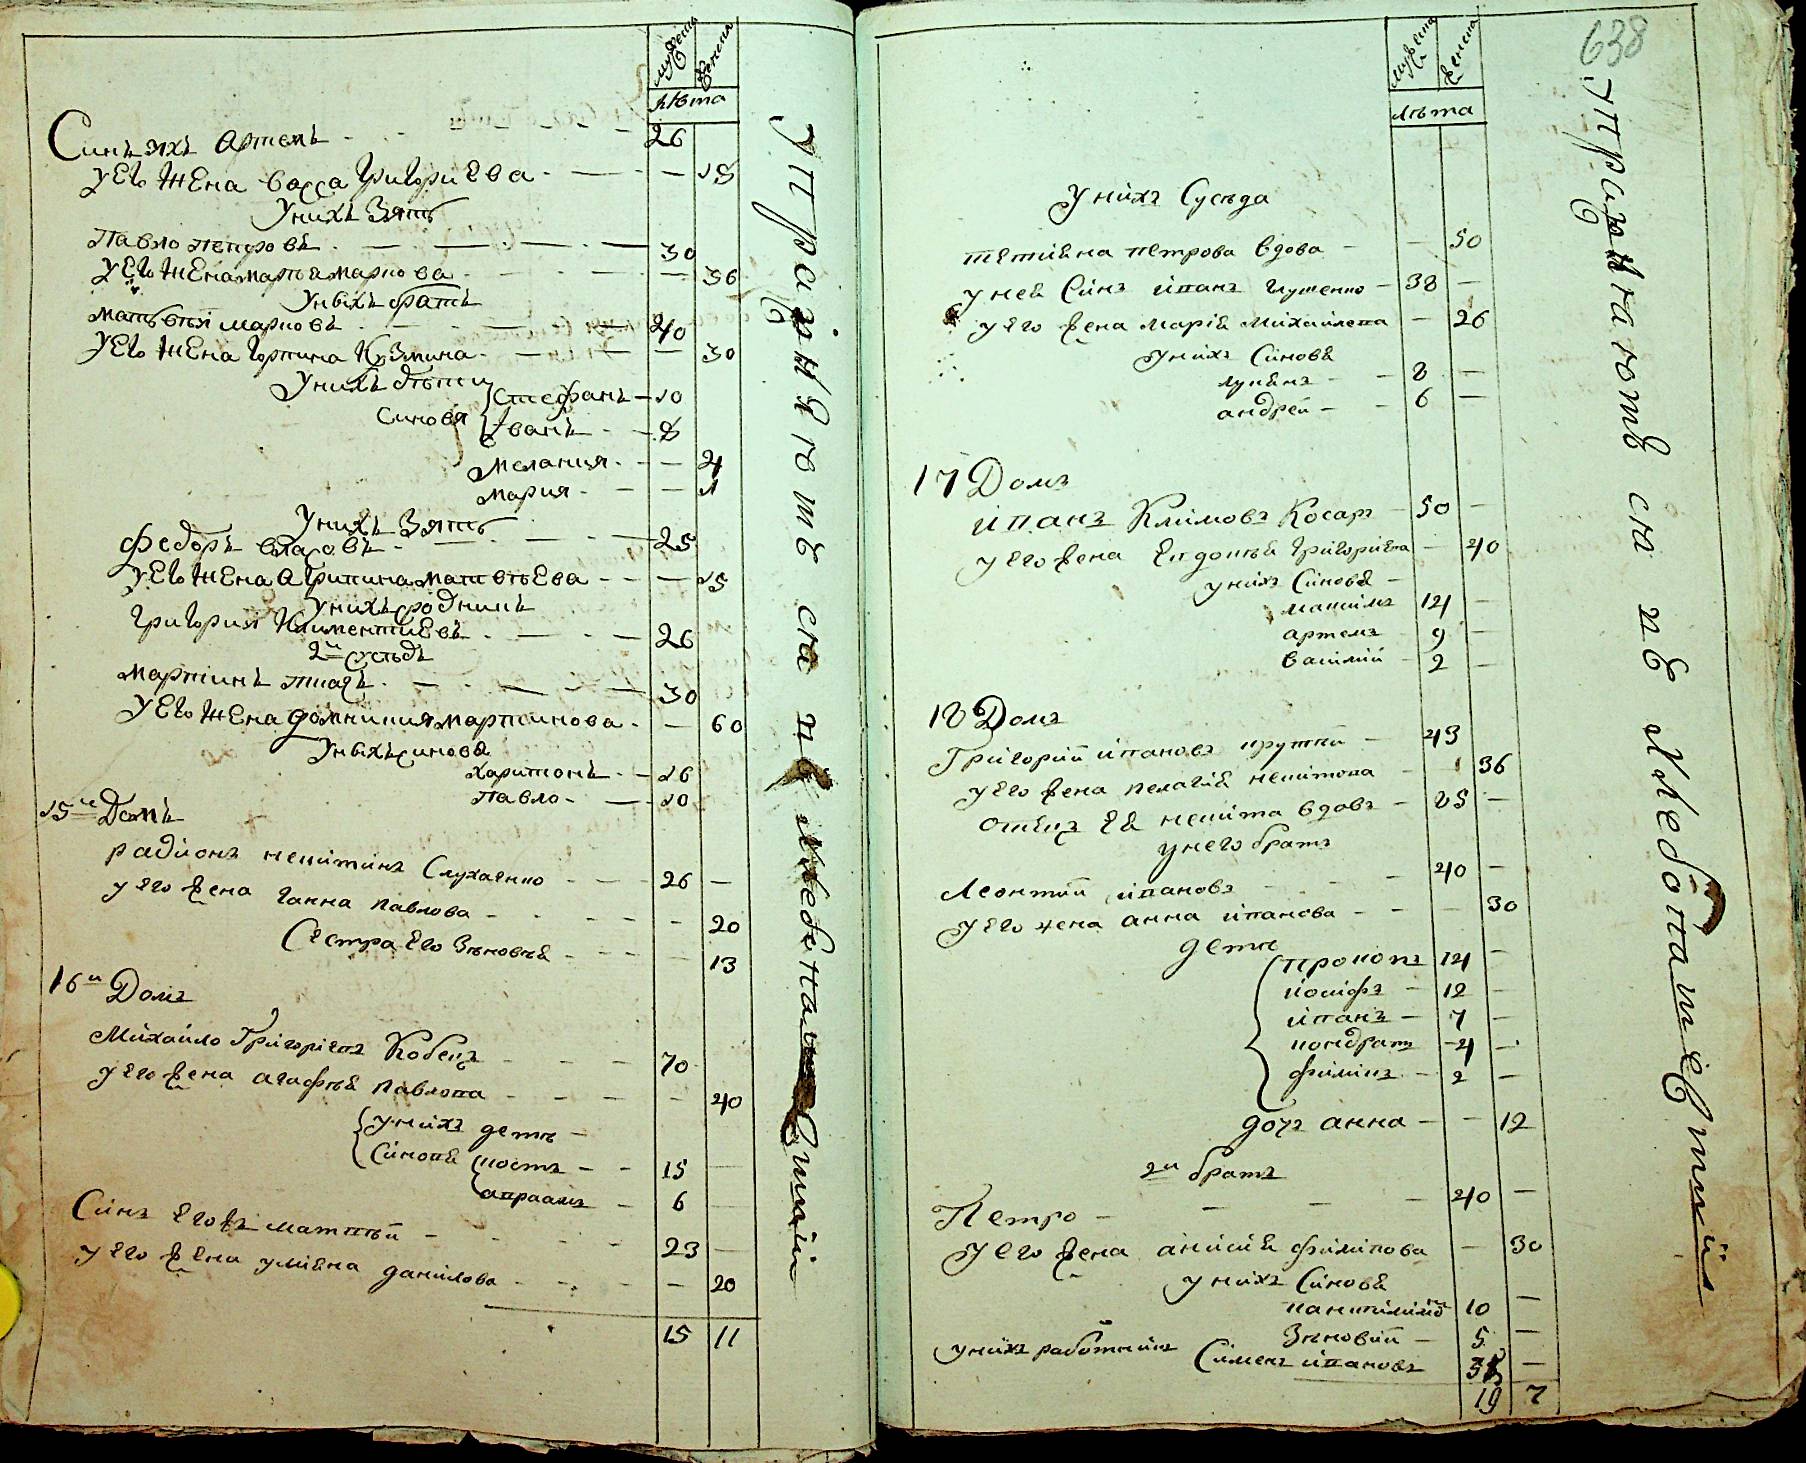 мужеска женска
лѣта
Синъ ихъ Артемъ 26
у Его жЕна Васса ГригориЕва 18
у нихъ Зять
Павло петровъ 30
у Его жЕна марѳа маркова 36
у ныхъ братъ
матьвѣй марковъ 40
у Его жЕна Горпина Кузмина 30
у нихъ дѣти
Синовя Стефанъ 10
Иванъ 8
Мелания 4
Мария 1
у нихъ Зять
федоръ власовъ 25
у Его жЕна Агрипина матвѣЕва 15
у нихъ родникъ
Григорий КлиментиЕвъ 26
2й сусѣдъ
Мартинъ ткачъ 30
у Его жЕна домникия мартинова 60
у ныхъ синовя
Харитонъ 16
Павло 10
15й Домъ
радионъ некитинъ Слухаенко 26
у Его жена ганна павлова 20
Сестра Его Зѣновѣя 13
16й Домъ
Михайло Григоріевъ Кобецъ 70
у Его жена агафѣя павлова 40
у нихъ дети
Синовя костъ 15
авраамъ 6
Синъ Его жъ матвѣй 23
у Его жена уляна данилова 20
15 11
упражняютъ ся въ хлебопашествіи
638
мужеска женска
лѣта
у нихъ Сусѣда
тетияна петрова вдова 50
у ней Синъ иванъ глущенко 38
у Его жена Марія михайлова 26
у нихъ Синовя
лукянъ 8
андрей 6
17 Домъ
иванъ Климовъ Косаръ 50
у Его жена Евдокѣя григоріева 40
у нихъ Синовя
максимъ 14
артемъ 9
василий 2
18 Домъ
Григорий ивановъ крутки 43
у Его жена пелагія некитова 36
отецъ Ея некита вдовъ 85
у него братъ
Леонтий ивановъ 40
у Его жена анна иванова 30
дети
прокопъ 14
иосифъ 12
иванъ 7
кондратъ 4
филипъ 2
дочъ анна 12
2й братъ
Петро 40
у Его жена анисія филипова 30
у нихъ Синовя
10
Зѣновий 5
у нихъ работникъ Сименъ ивановъ
19 7
упражняютъ ся въ хлебопашествіи